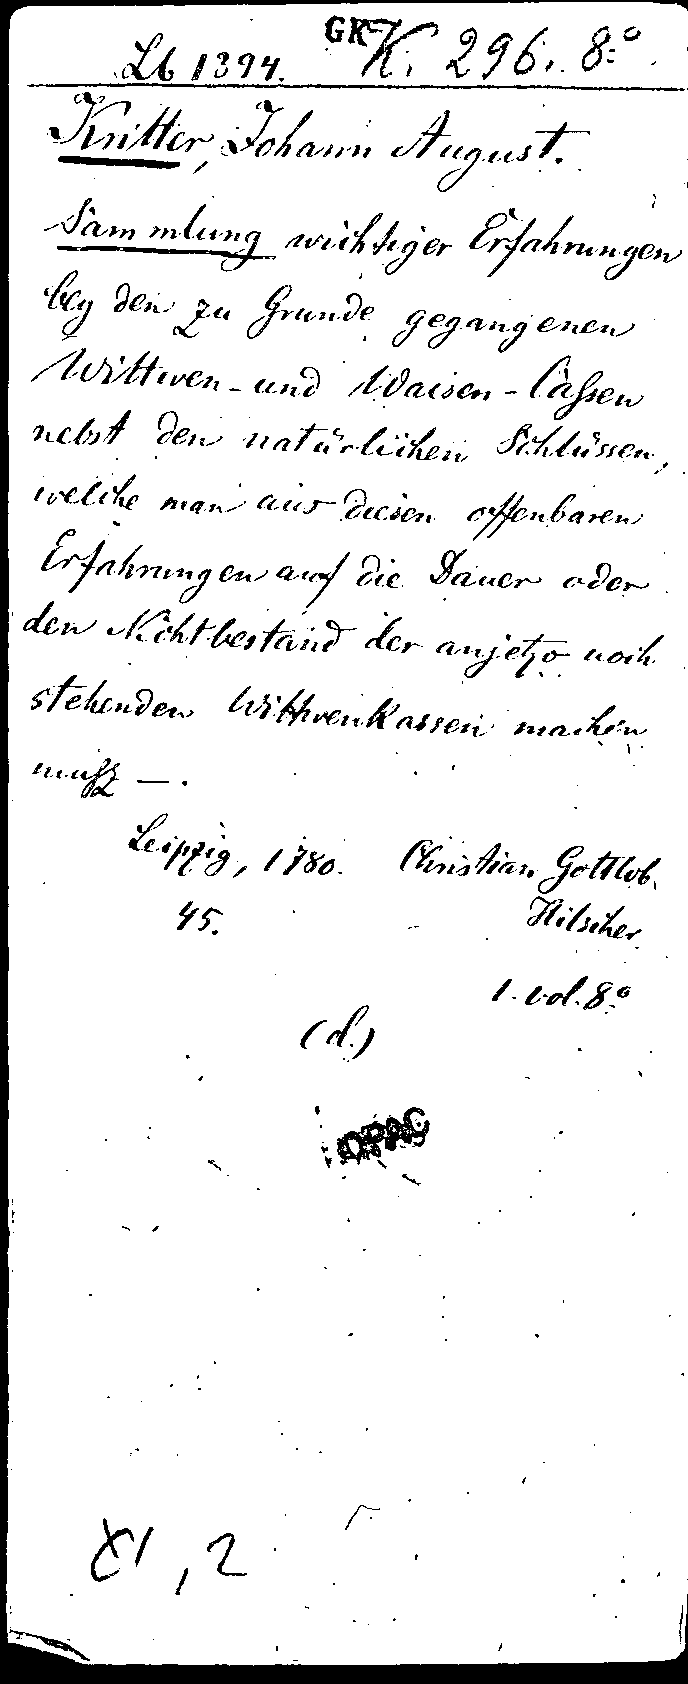 GK7
Lb 1394. K. 296. 8:º
Kritter, Johann August.
Sammlung wichtiger Erfahrungen
bey den zu Grunde gegangenen
Wittwen- und Waisen-Cassen
nebst den natürlichen Schlüssen,
welche man aus diesen offenbaren
Erfahrungen auf die Dauer oder
den Nichtbestand der anjetzo noch
stehenden Wittwenkassen machen
muß —.
Leipzig, 1780. Christian Gottlob
45. Hilscher
1. vol. 8:º
(d.)
OPAC
XI, 2